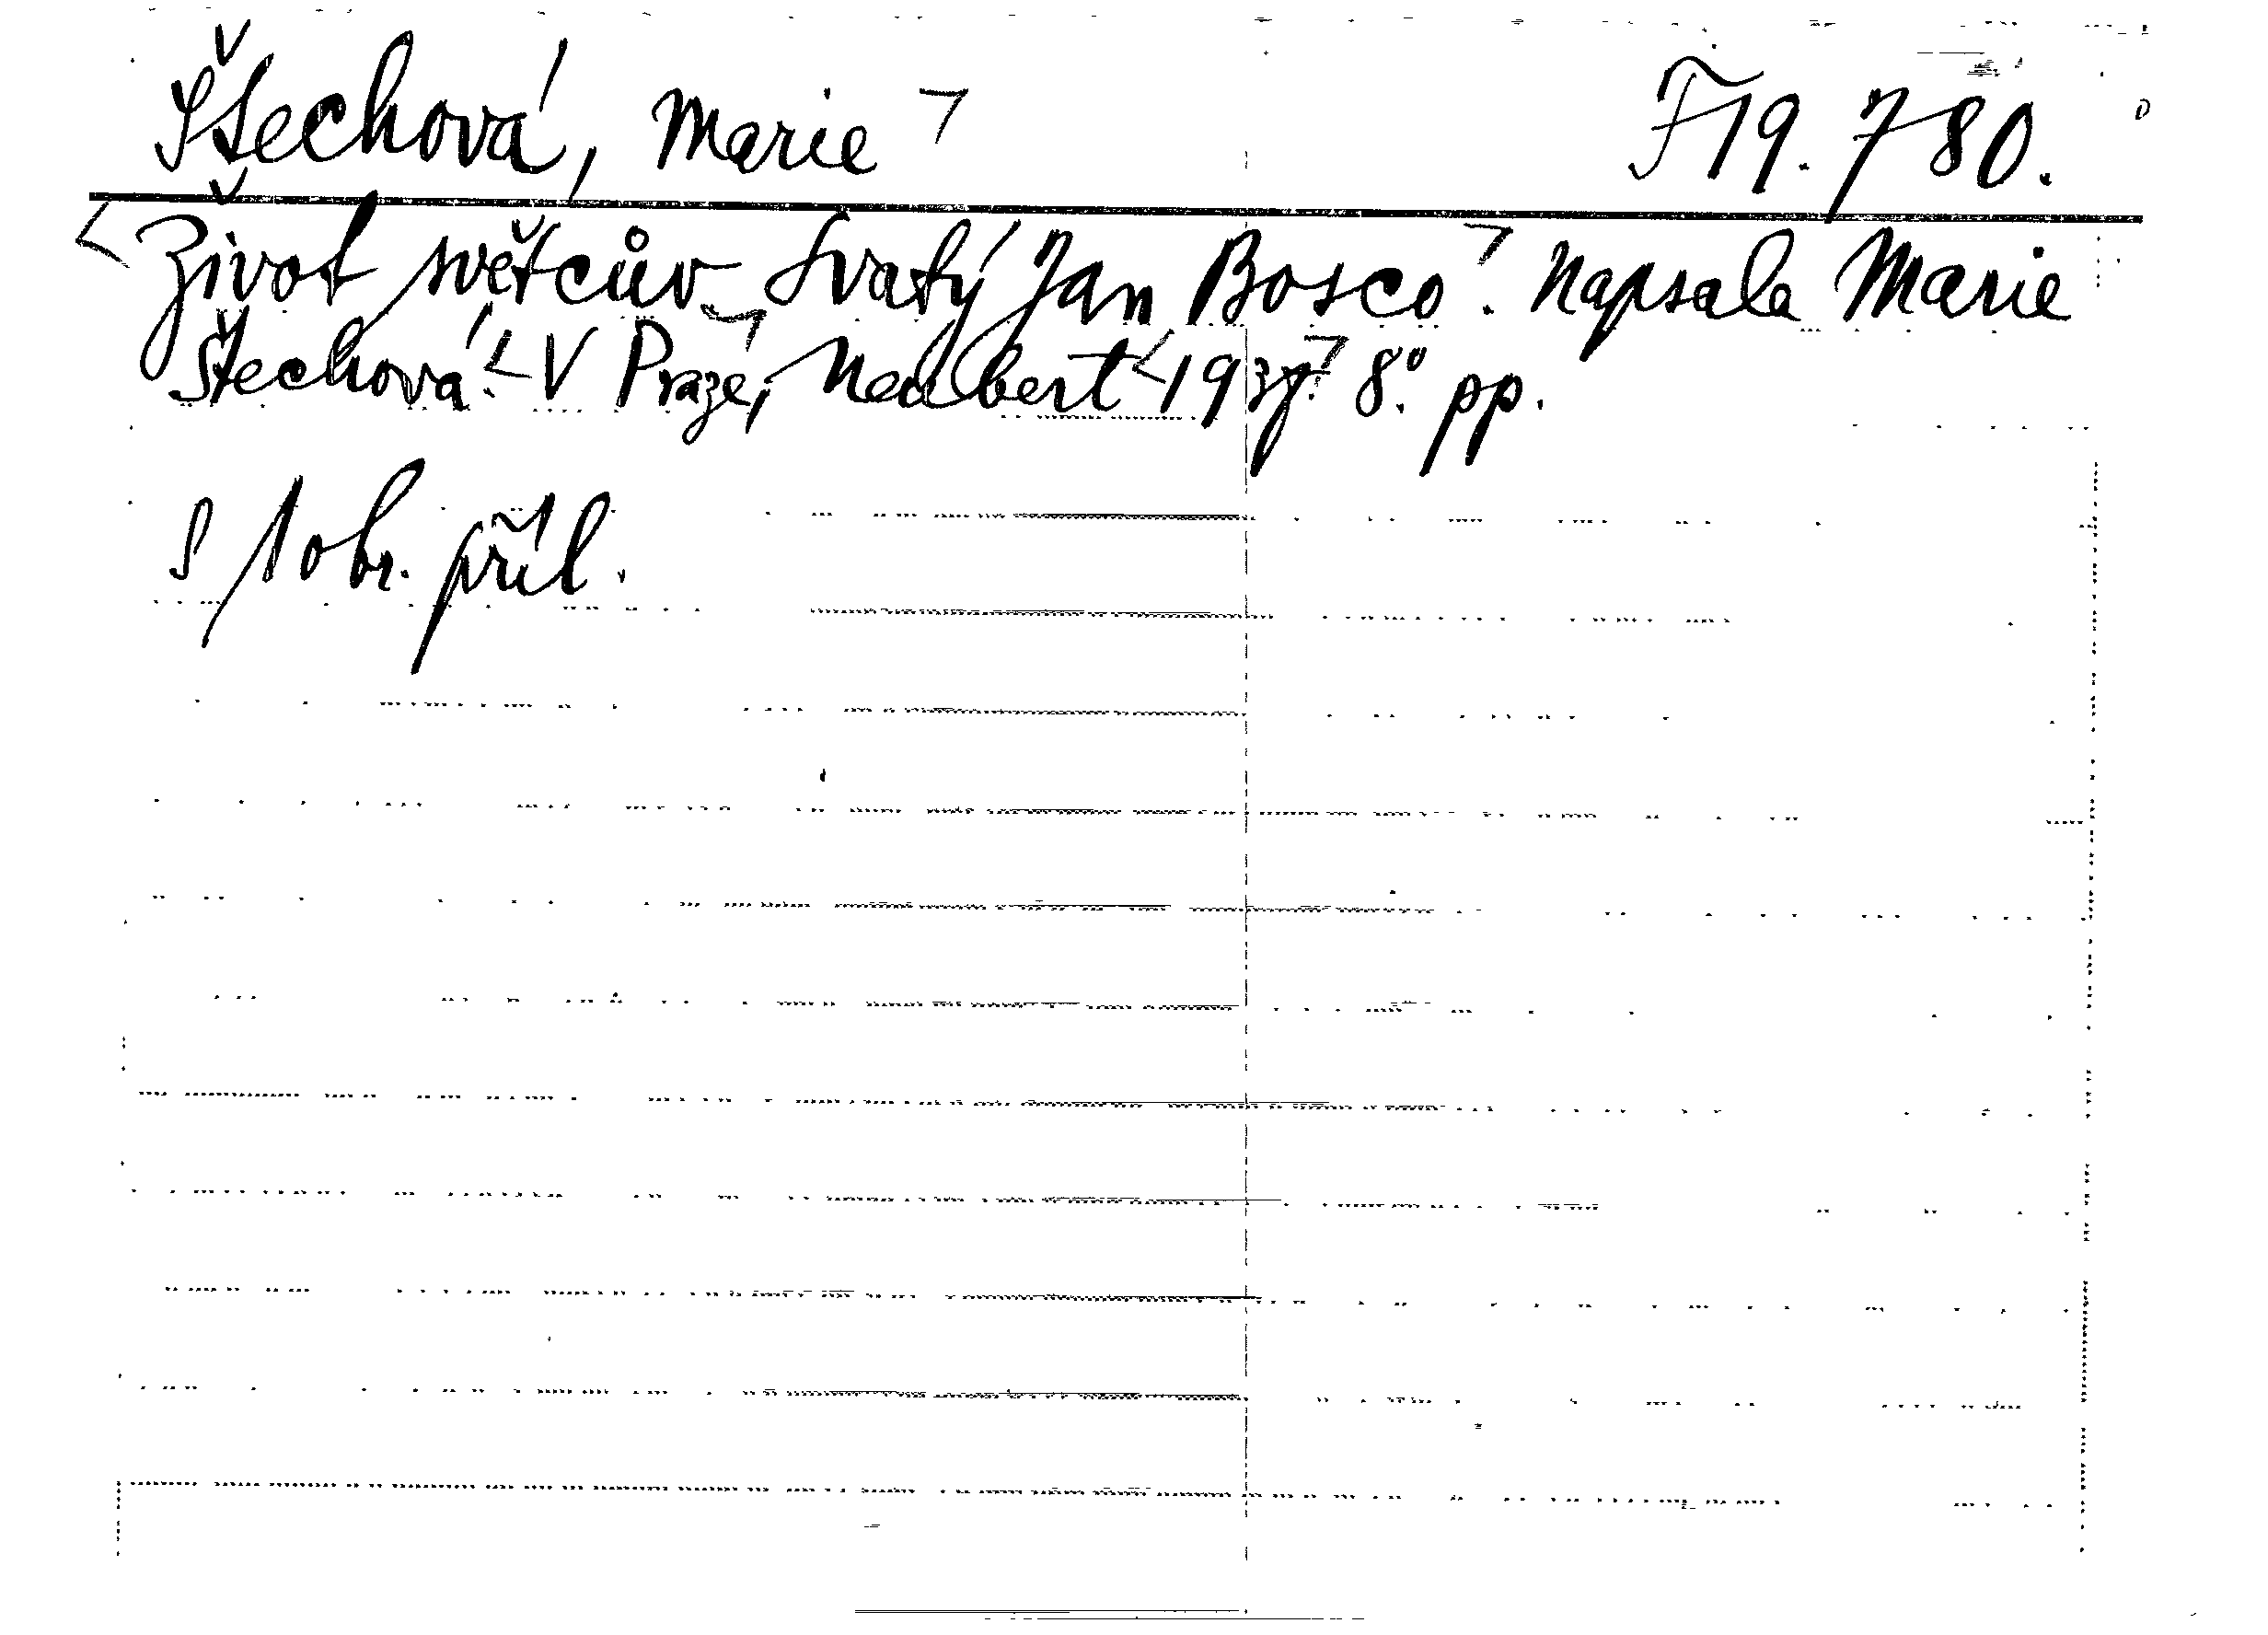 Štechová, Marie F 19.780.
Život světcův Svatý Jan Bosco. Napsala Marie
Štechová. V Praze, Neubert 1937. 8°. pp.
S 1 obr. příl.